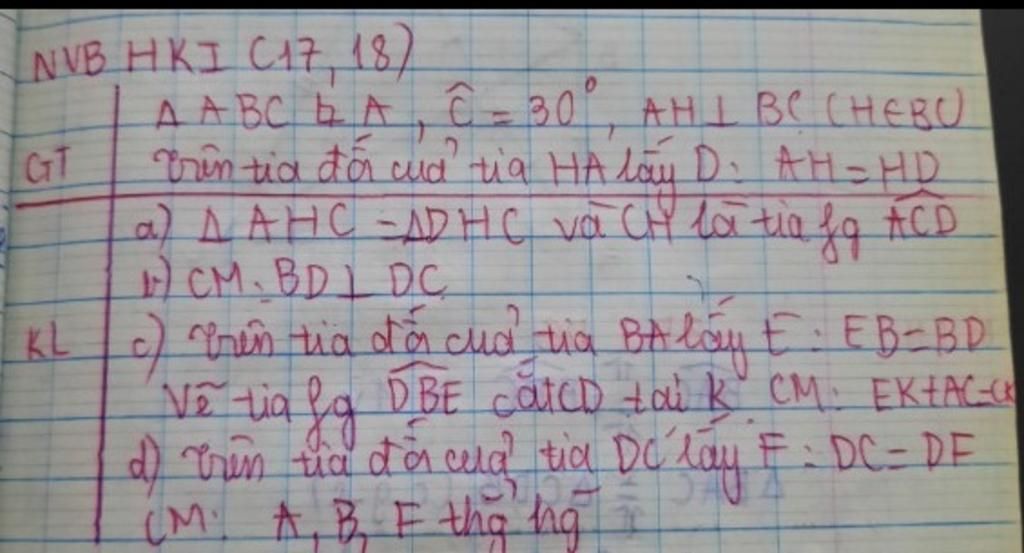 NVB HKI (17, 18)
GT
Δ ABC ⊥ A, Ĉ = 30°, AH ⊥ BC (H∈BC)
trên tia đối của tia HA lấy D: AH = HD
KL
a) Δ AHC = ΔDHC và CH là tia fg ACD
b) CM: BD ⊥ DC
c) trên tia đối của tia BA lấy E: EB = BD
Vẽ tia fg DBE cắt CD tại K CM: EK + AC = CK
d) trên tia đối của tia DC lấy F: DC = DF
CM: A, B, F thẳng hg